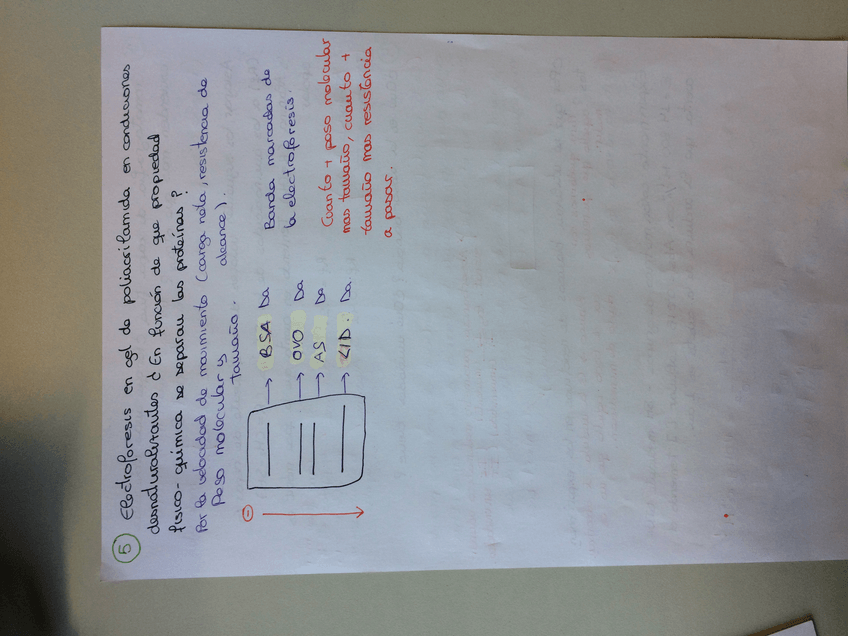 5 Electroforesis en gel de poliacrilamida en condiciones
desnaturalizantes ¿En función de que propiedad
físico-química se separan las proteínas?
Por la velocidad de movimiento (carga neta, resistencia de
Peso molecular y alcance).
tamaño.
⊖
→ BSA Da
→ OVO Da
→ AS Da
→ LID. Da
Banda marcadas de
la electroforesis.
Cuanto + peso molecular
mas tamaño, cuanto +
tamaño mas resistencia
a pasar.